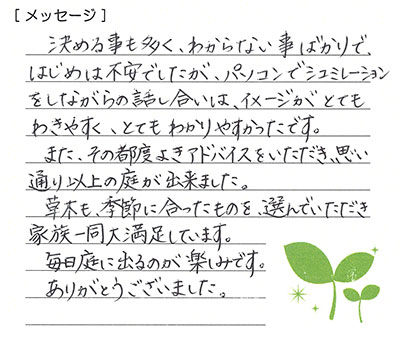 [メッセージ]
決める事も多く、わからない事ばかりで、
はじめは不安でしたが、パソコンでシュミレーション
をしながらの話し合いは、イメージがとても
わきやすく、とてもわかりやすかったです。
また、その都度よきアドバイスをいただき、思い
通り以上の庭が出来ました。
草木も、季節に合ったものを、選んでいただき
家族一同大満足しています。
毎日庭に出るのが楽しみです。
ありがとうございました。